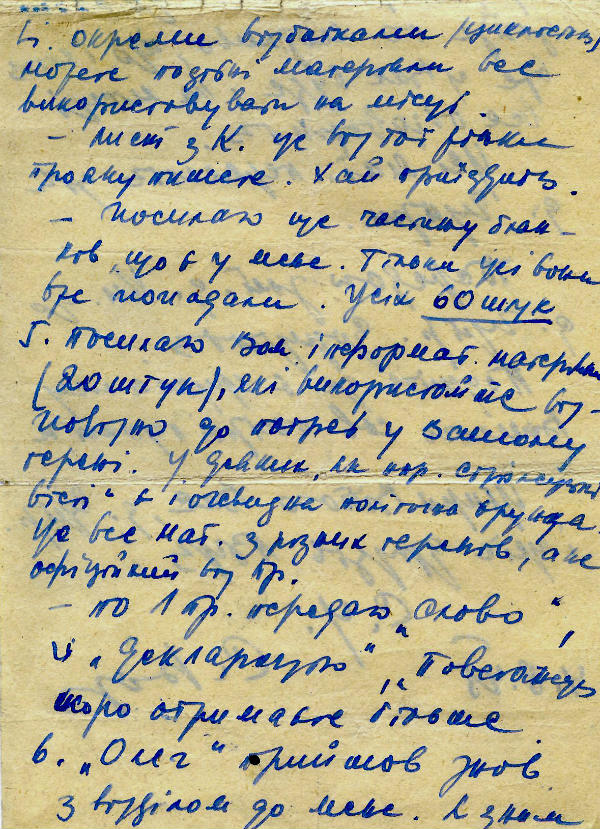 4. окремим відбиткам (циклостиль)
можете подібні матеріяли все
використовувати на місці.
– Лист з К. це відтой
прошу пишете. Хай приїздить.
– Посилаю ще частину блан-
ків що є у мене. Тільки усі вони
вже попадали. Усіх 60 штук
5. Посилаю Вам інформат. матеріяли
(20 штук), які використайте від-
повідно до потреб у Вашому
терені. У деяких, як нпр.
вісті" є і очевидна політична брунда.
Це все мат. з різних теренів, а не
офіційний від Пр.
– по 1 пр. передаю „Слово",
і „Декларацію", „Повстанець
скоро отримаєте більше
6. „Олег" прийшов знов
з відділом до мене. Я з ним